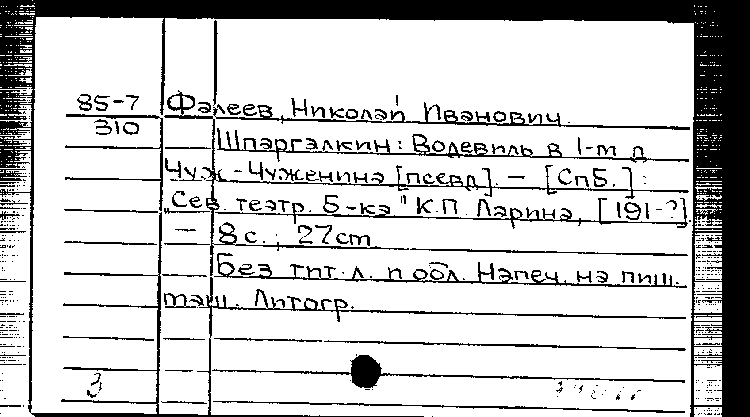 85-7 Фалеев, Николай Иванович.
310 Шпаргалкин: Водевиль в 1-м д.
Чуж-Чуженина [псевд]. – [СПБ.]:
„Сев. театр. Б-ка" К.П. Ларина, [191-?].
– 8 с.; 27 cm.
Без тит. л. и обл. Напеч. на пиш.
маш. Литогр.
3